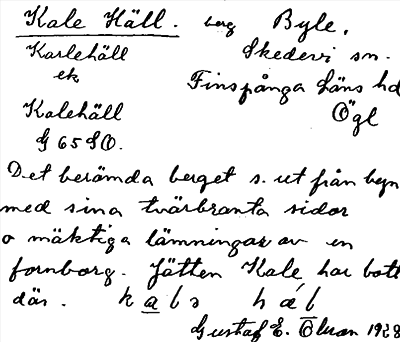 Kale Häll. berg Byle,
Karlehäll Skedevi sn.
ek Finspånga läns hd
Kalehäll Ögl
G 65 SO.
Det berömda berget s. ut från byn
med sina tvärbranta sidor
o mäktiga lämningar av en
fornborg. Jätten Kale har bott
där. kalə häl
Gustaf E. Ölman 1928